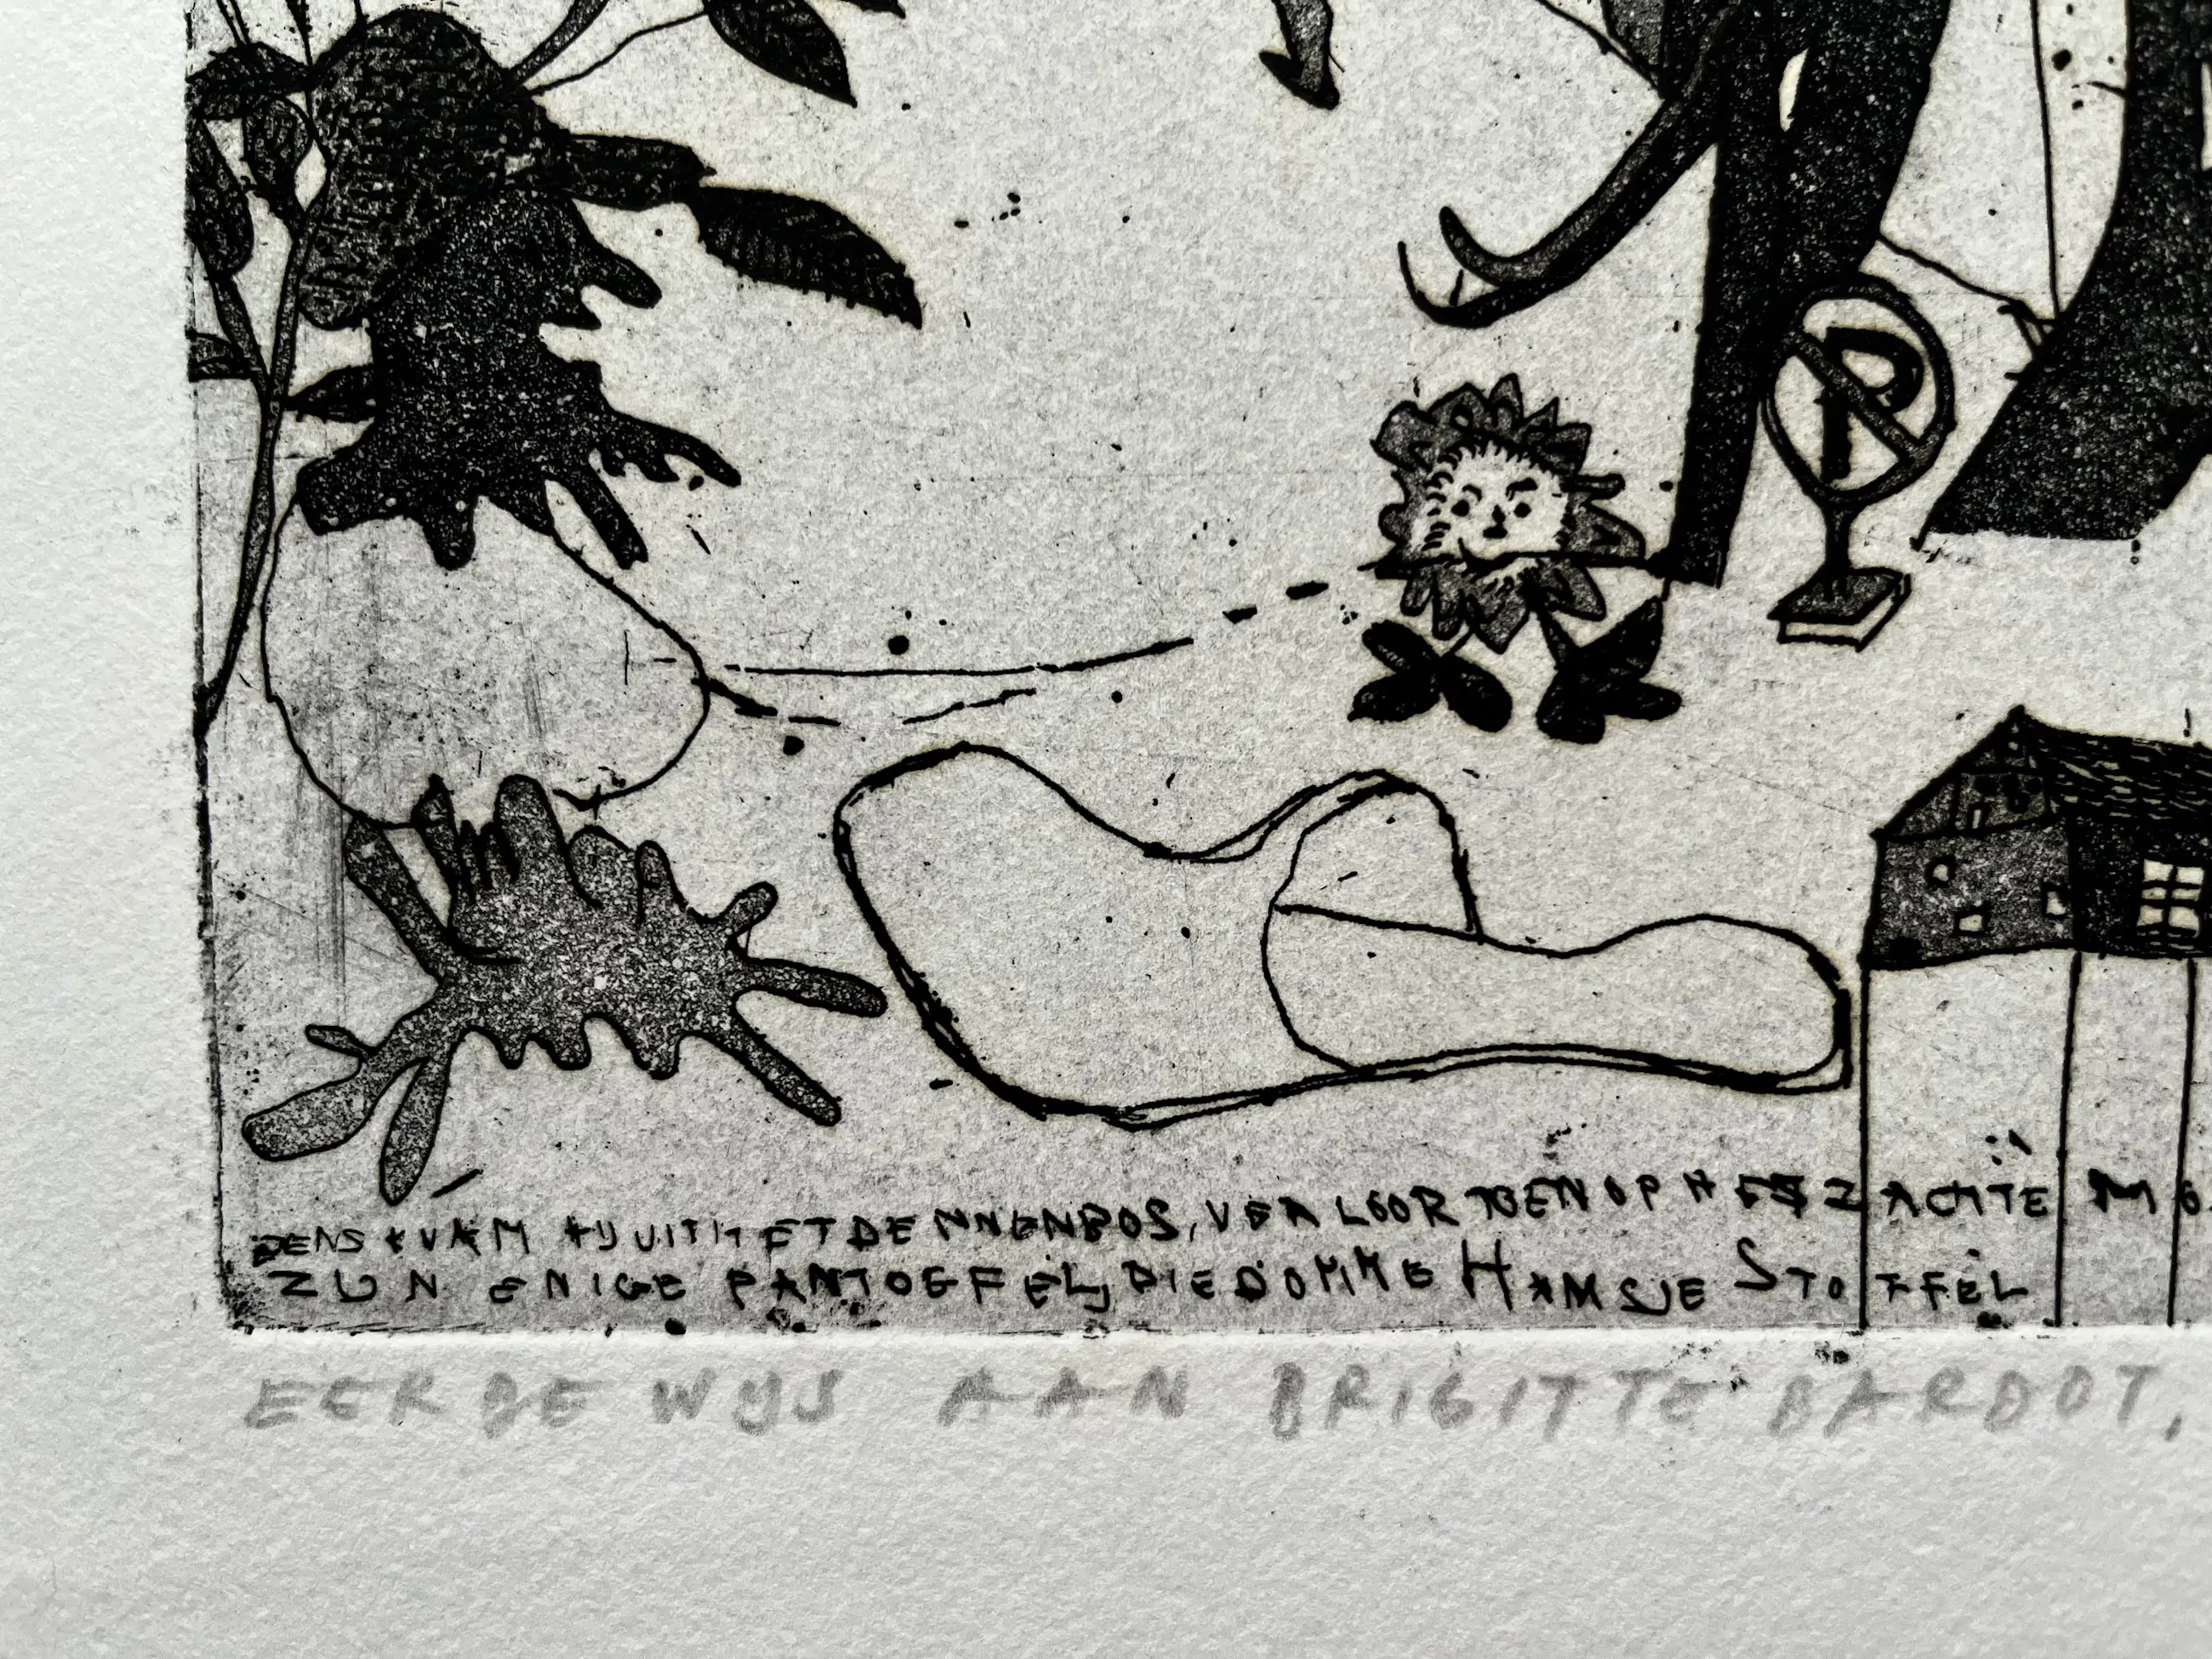 P
EENS KWAM HIJ UIT HET DENNENBOS, VERLOOR TOEN OP HET ZACHTE
ZIJN ENIGE PANTOFFEL, DIE DOMME HANSJE STOFFEL
EERBEWIJS AAN BRIGITTE BARDOT,